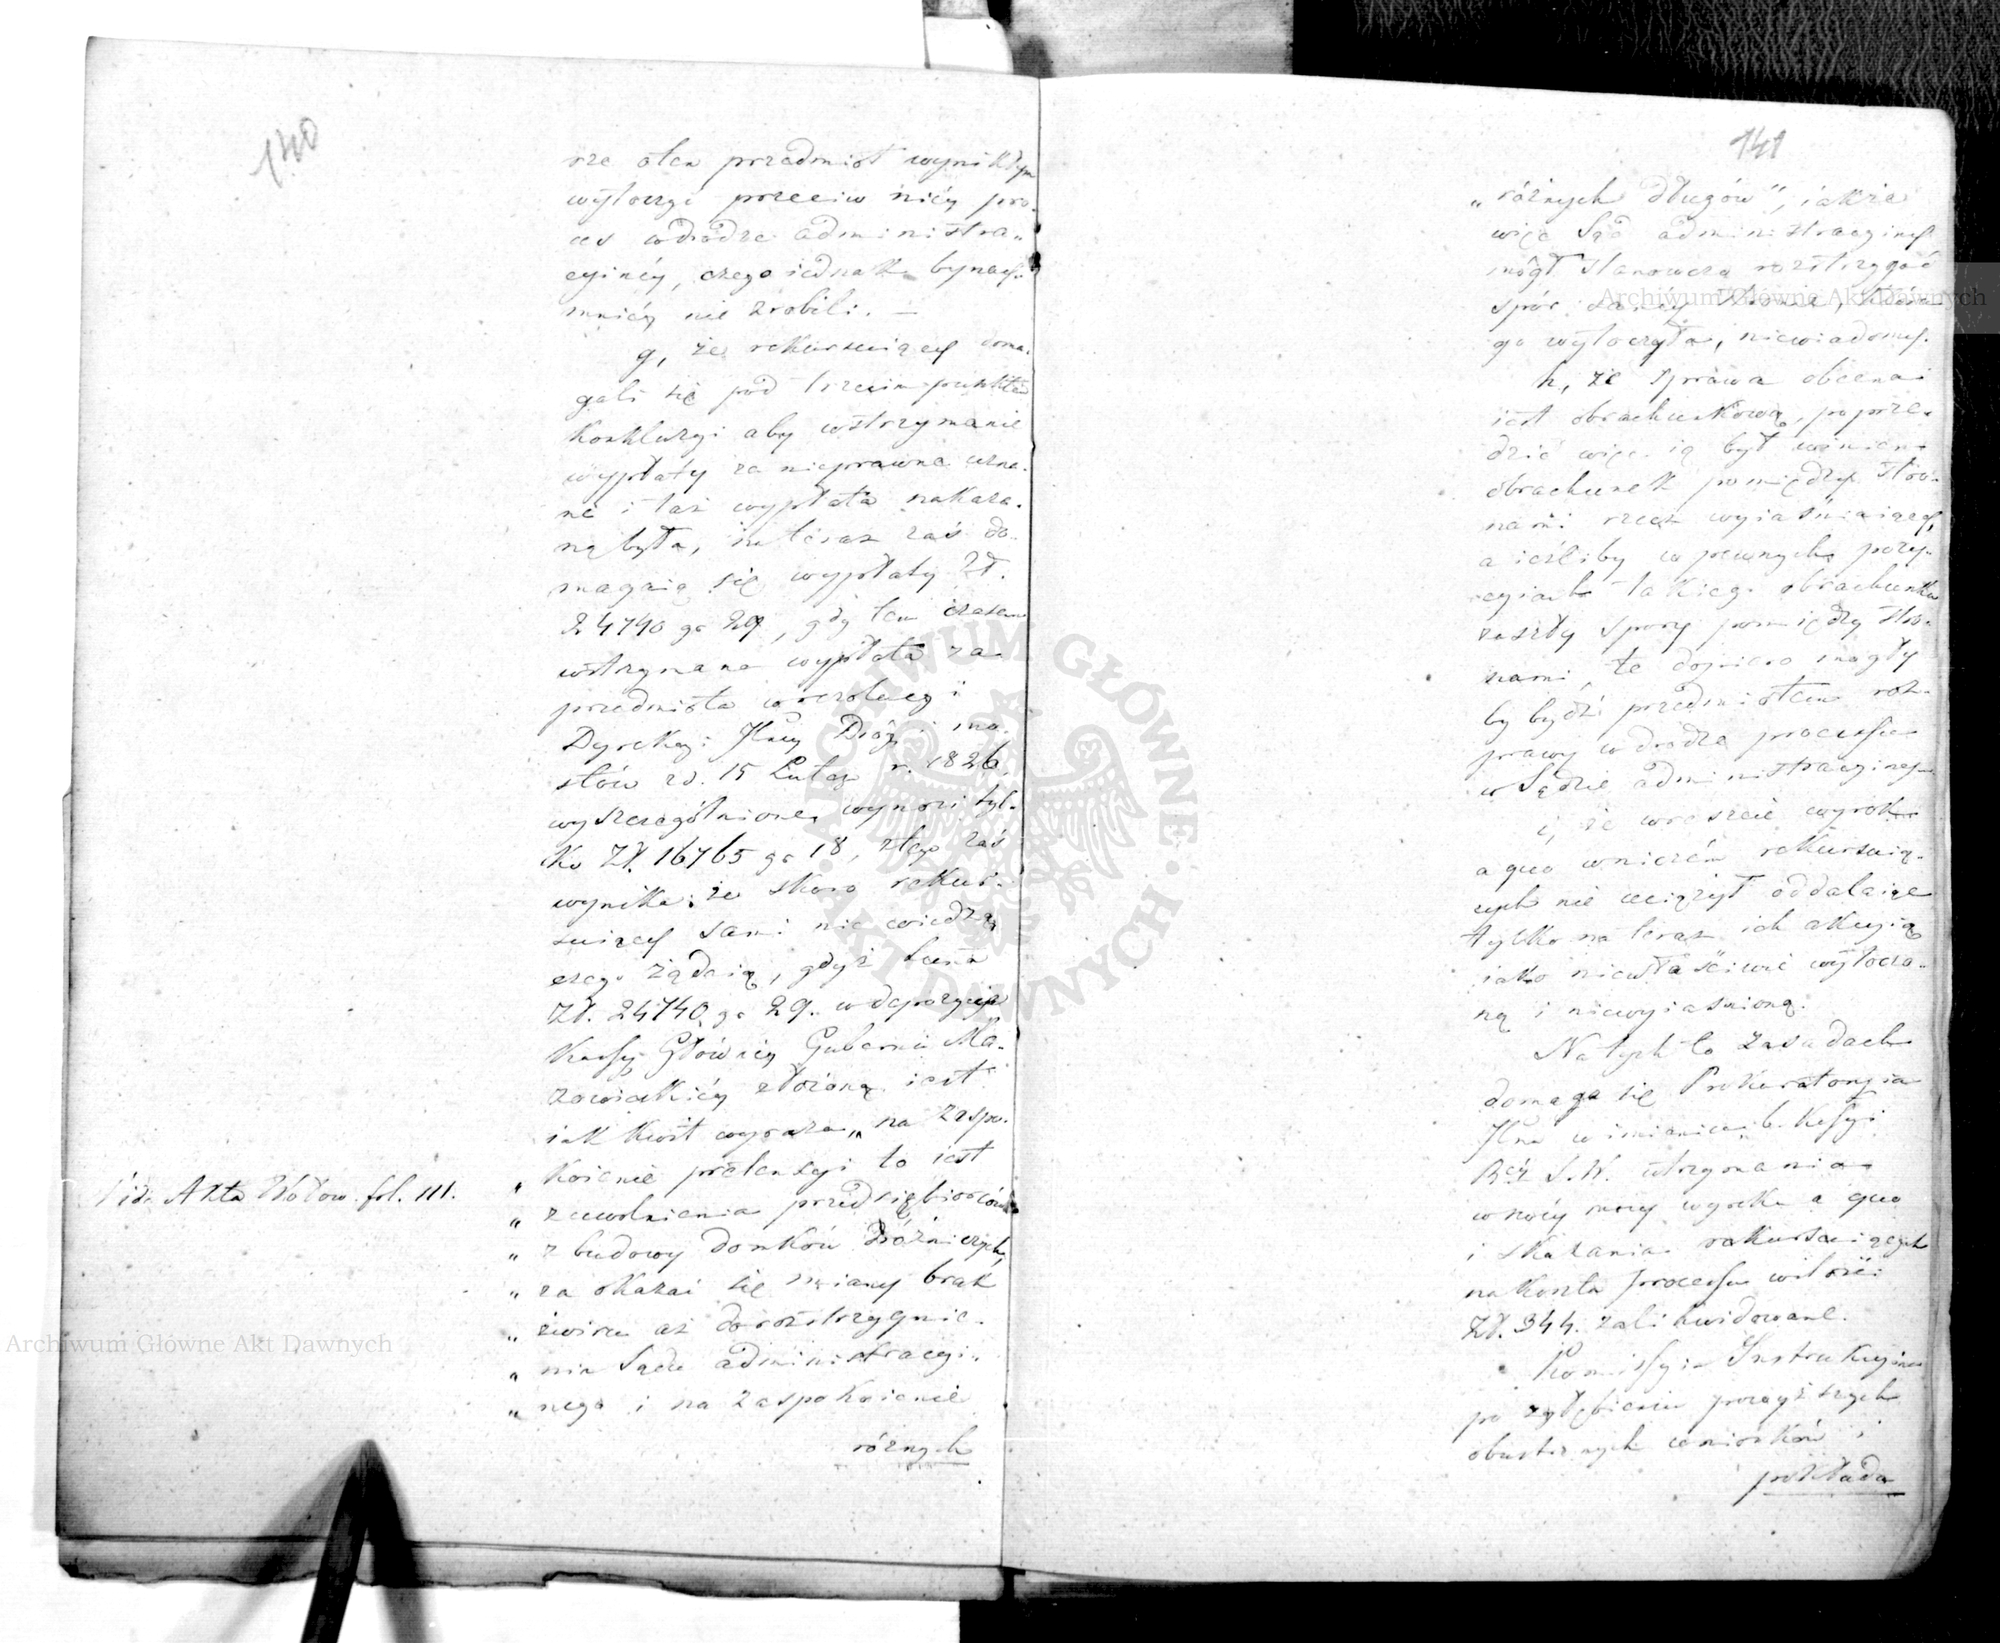 140
rze o ten przedmiot wynikłym
wytoczyć przeciw niéy pro-
ces w drodze administra„
cyinéy, czego iednak bynay-
mniéy nie zrobili. —
g, że rekursuiący doma-
gali się pod trzecim punktem
Konkluzyi aby wstrzymanie
wypłaty za nieprawne uzna-
ne i taż wypłata nakaza-
ną była, in teraz zaś do-
magaią się wypłaty Zł.
24740 gr 29, gdy tem czasem
wstrzymana wypłata za
przedmiota w rezolucyi
Dyrekcyi Jlney Dróg i mo-
stów z d. 15 Lutego r. 1826
wyszczególnione, wynosi tyl-
ko Zł. 16765 gr 18, z tego zaś
wynika: że skoro rekur-
suiący sami nie wiedzą
czego żądaią, gdyż suma
Zł. 24740 gr 29. w depozycie
Kassy Głównéy Gubernii Ma-
zowieckiéy złożoną iest
iak kwit wyraża „na zaspo-
„ koienie pretensyi to iest
„ zauwolnienia przedsiębiorców
„ z budowy domków dróżniczych,
„ za okazać się miany brak
„ żwiru aż do rozstrzygnie-
„ nia Sądu administracyi„
„ nego i na zaspokoienie
różnych
Vide Akta Wołow. fol. 111.
141
„ różnych długów", iakże
więc Sąd administracyiny
mógł stanowczo rozstrzygać
spór saméy stronie, która
go wytoczyła, niewiadomy.
h, że sprawa obecna
iest obrachunkową, poprze-
dzić więc ią był winien
obrachunek pomiędzy stro-
nami rzecz wyiaśniaiący,
a ieśliby w pewnych pozy-
cyiach takiego obrachunku
zaszły spory pomiędzy stro-
nami, te dopiero mogły
by bydź przedmiotem roz-
prawy w drodze processu
w Sądzie administracyinym
i, że wreszcie wyrok
a quo w niczém rekursuią-
cych nie uciążył oddalaiąc
tylko na teraz ich akcyią
iako niewłaściwie wytoczo-
ną i niewyiaśnioną.
Na tych to zasadach
domaga się Prokuratorya
Jlna w imieniu b. Kassy
Rey S. W. utrzymania
w swéy mocy wyroku a quo
i skazania rekursuiących
na koszta processu w ilości
Zł. 344. zalikwidowane.
Kommissyia Instrukcyina
po zgłębieniu powyższych
obustronnych wniosków i
pokłada
Archiwum Główne Akt Dawnych
Archiwum Główne Akt Dawnych
ARCHIWUM GŁÓWNE AKT DAWNYCH